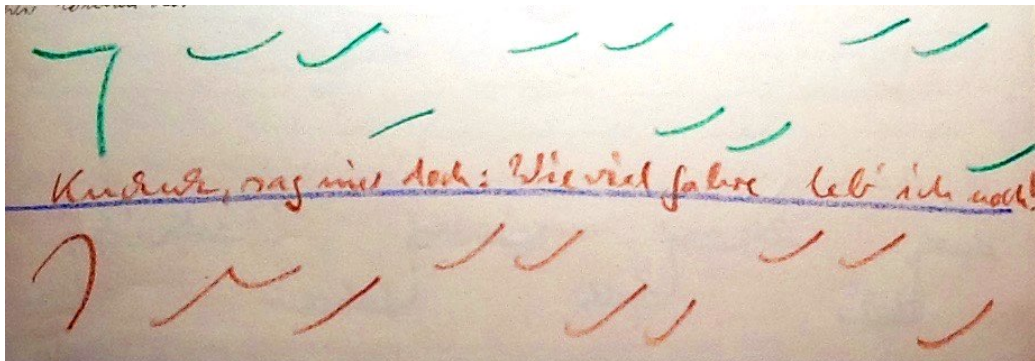 Kuckuck, sag mir doch: Wie viel Jahre leb' ich noch?